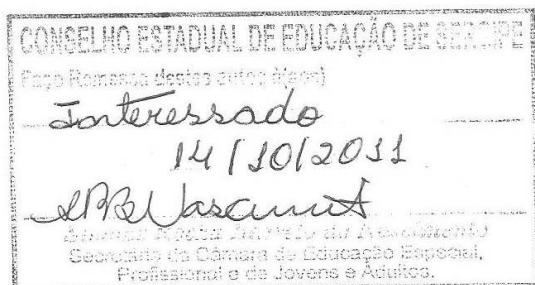 CONSELHO ESTADUAL DE EDUCAÇÃO DE SERGIPE
Faço Remessa destes autos à(ao)
Interessado
14/10/2011
Secretária da Câmara de Educação Especial,
Profissional e de Jovens e Adultos.